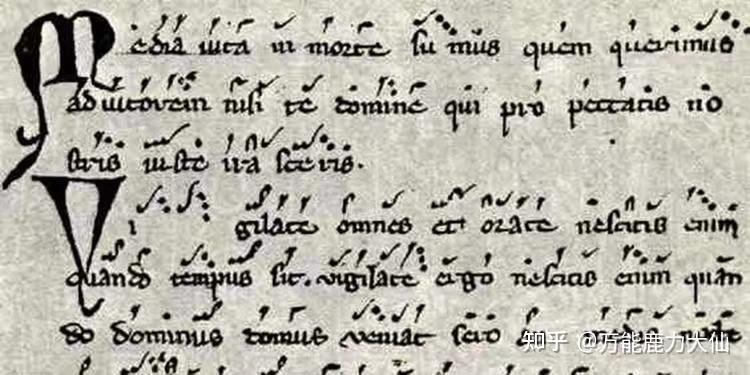 Media uita in morte su mus quem querimus
ad iutorem nisi te domine qui pro peccatis no
stris iuste ira sce ris.
Vi gilate omnes et orate nescitis enim
quando tempus sit. vigilate ergo nescitis enim quan
do dominus domus veniat sero
知乎 @万能鹿力大仙